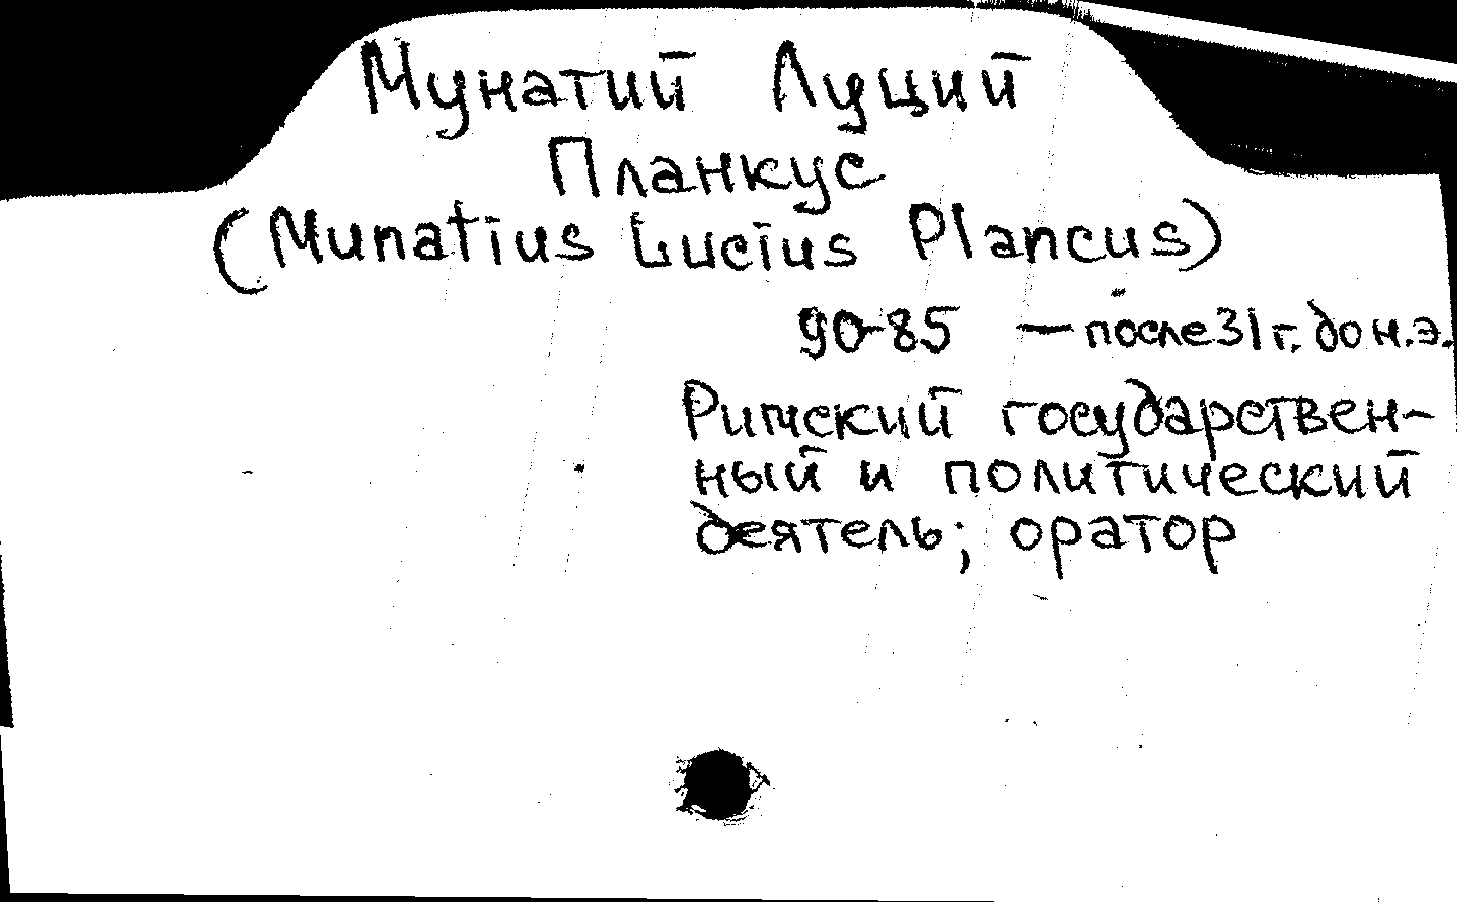 Мунатий Луций
Планкус
(Munatius Lucius Plancus)
90-85 — после 31 г. до н.э.
Римский государствен-
ный и политический
деятель; оратор